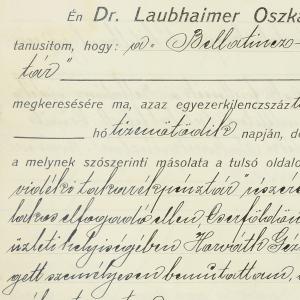 Én Dr. Laubhaimer Oszká
tanusítom, hogy: a „Bellatincz-
tár"
megkeresésére ma, azaz egyezerkilenczszáz t
hó tizenötödik napján, d
a melynek szószerinti másolata a tulsó oldalo
vidéki takarékpénztár" részére
lakos elfogadó ellen Cserföldön
üzleti helyiségében Horváth Géz
gett személyesen bemutattam,